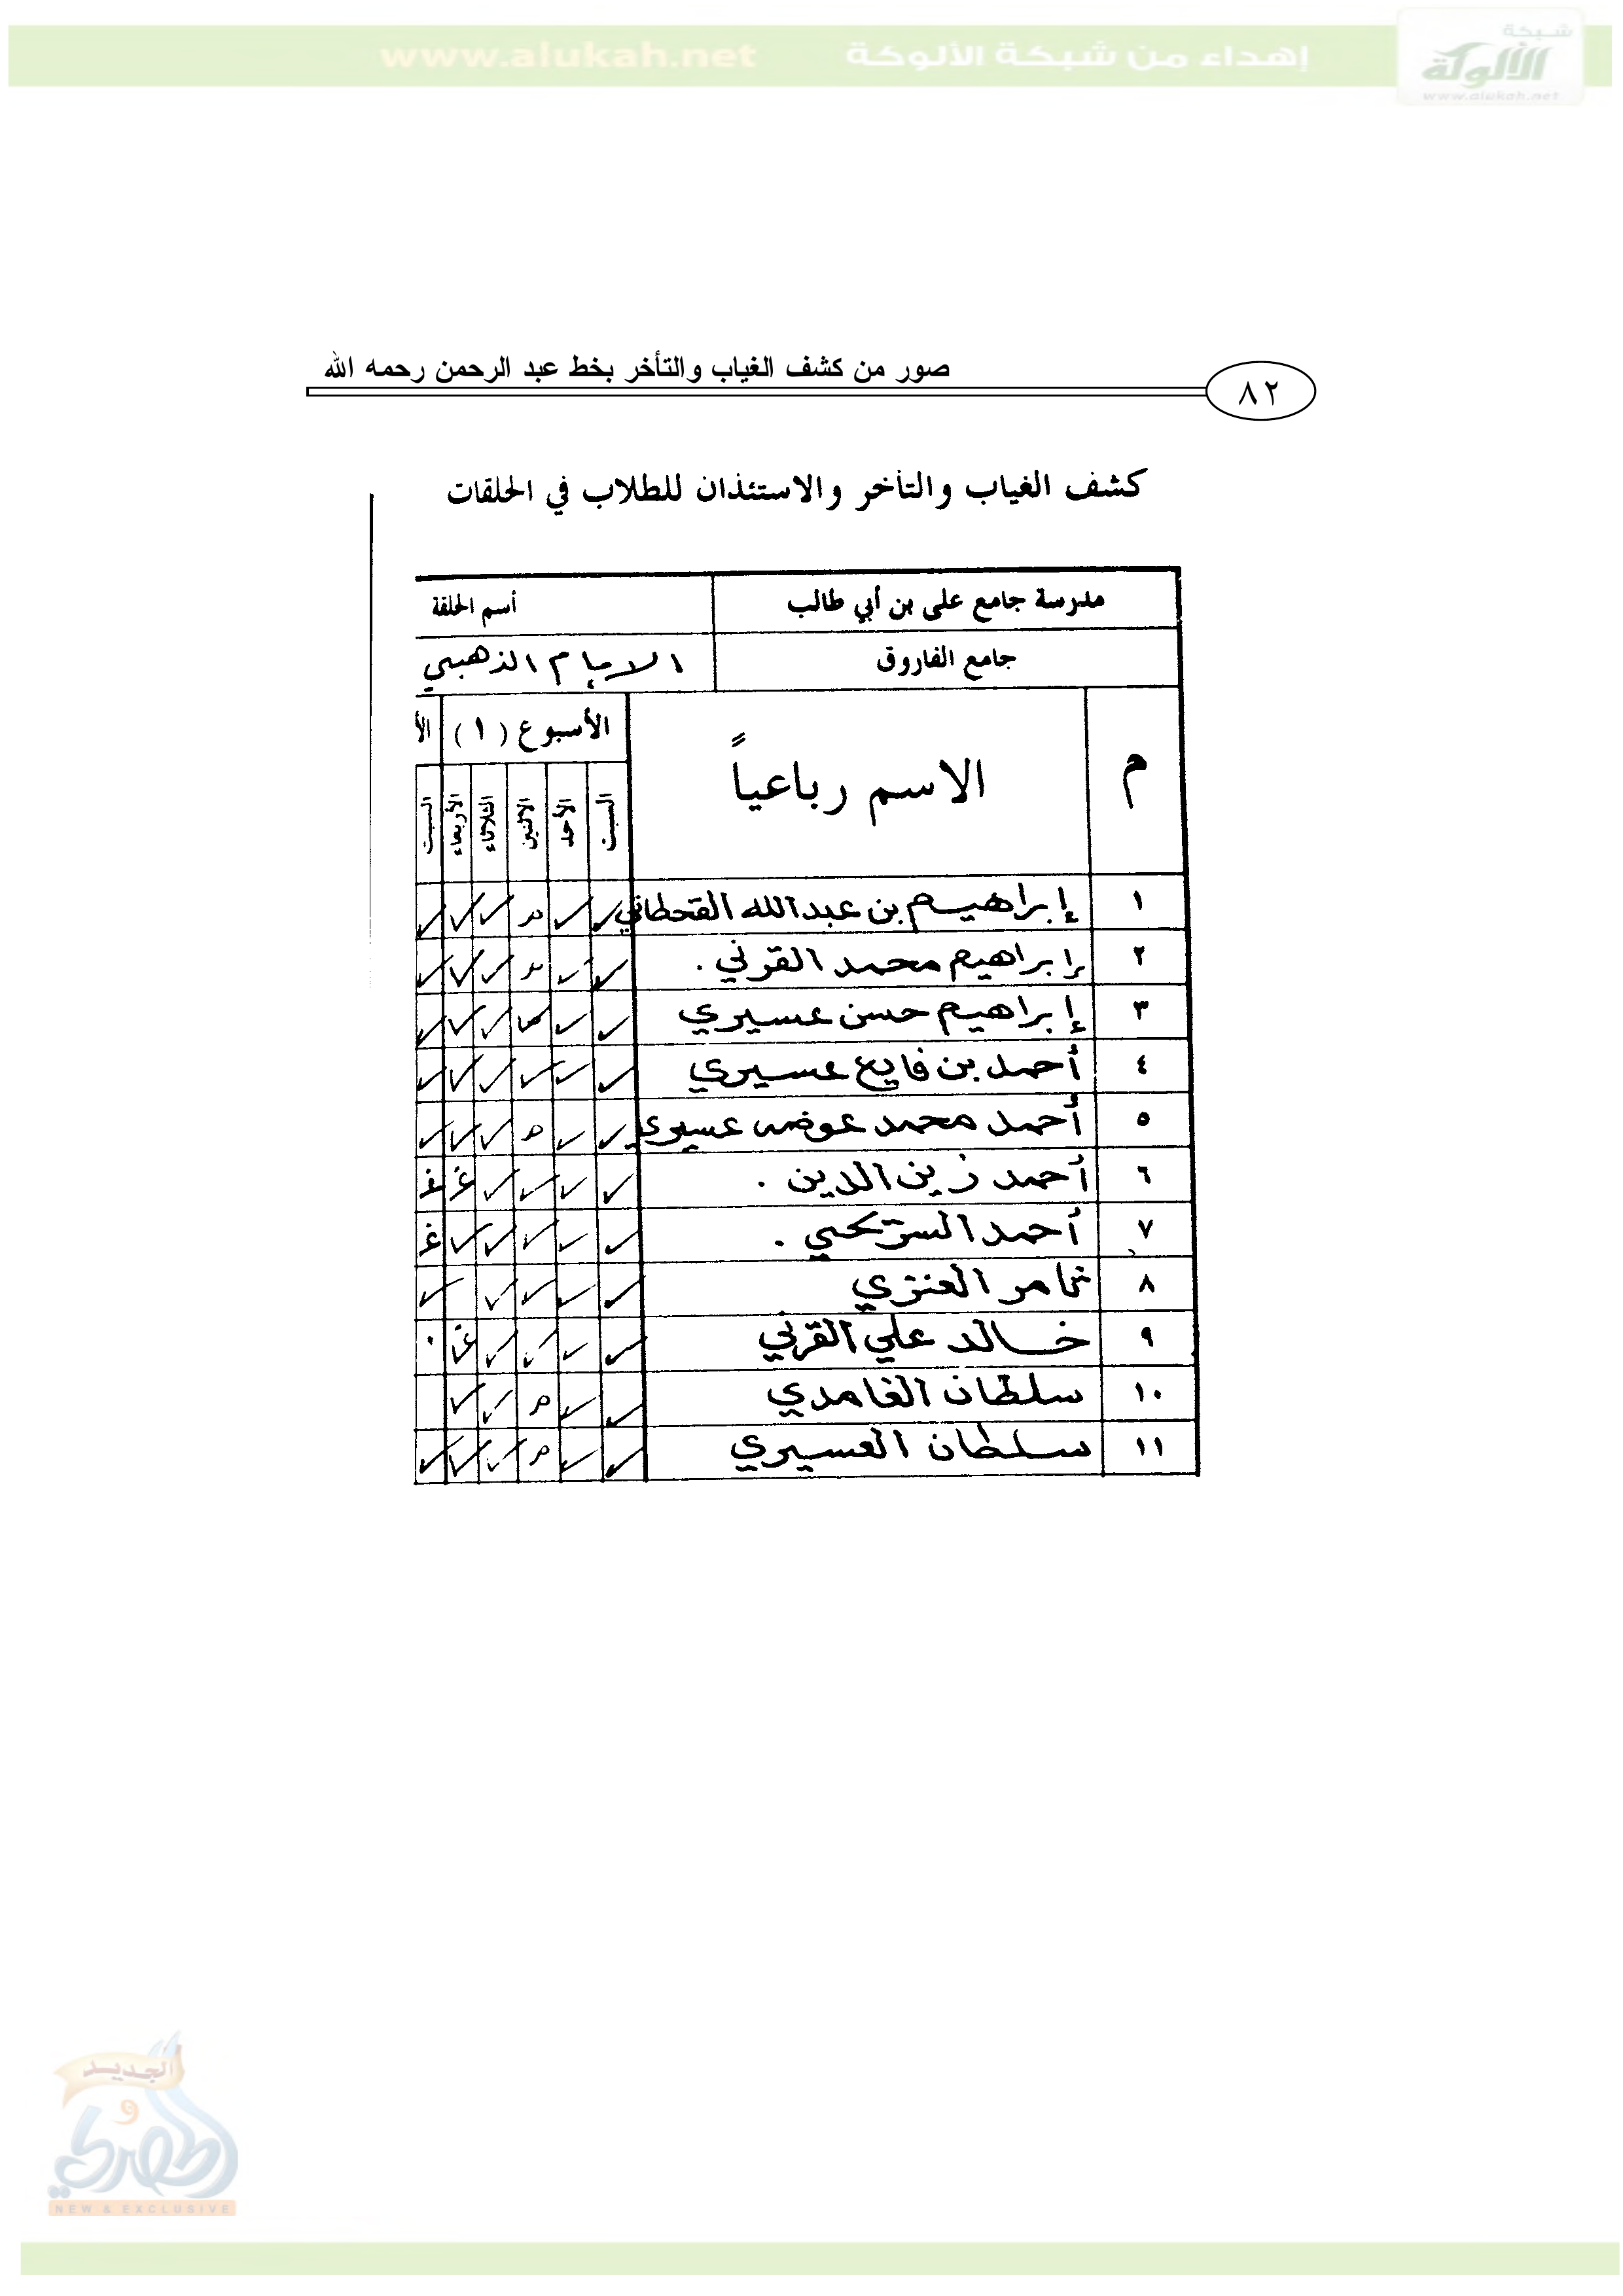 www.alukah.net إهداء من شبكة الألوكة
شبكة
الألوكة
www.alukah.net
صور من كشف الغياب والتأخر بخط عبد الرحمن رحمه الله
٨٢
كشف الغياب والتأخر والاستئذان للطلاب في الحلقات
مدرسة جامع على بن أبي طالب أسم الحلقة
جامع الفاروق الامام الذهبي
م الاسم رباعياً الأسبوع (١) الأ
السبت الأحد الاثنين الثلاثاء الأربعاء السبت
١ إبراهيم بن عبدالله القحطاني ✓ ✓ م ✓ ✓ ✓
٢ إبراهيم محمد القرني . ✓ ✓ م ✓ ✓ ✓
٣ إبراهيم حسن عسيري ✓ ✓ ✓ ✓ ✓
٤ أحمد بن فايع عسيري ✓ ✓ ✓ ✓ ✓ ✓
٥ أحمد محمد عوضه عسيري ✓ ✓ م ✓ ✓ ✓
٦ أحمد زين الدين . ✓ ✓ ✓ ✓ غ غ
٧ أحمد . ✓ ✓ ✓ ✓ ✓ غ
٨ ثامر العنزي ✓ ✓ ✓ ✓ ✓
٩ خالد علي القرني ✓ ✓ ✓ ✓ غ .
١٠ سلطان الغامدي ✓ ✓ م ✓ ✓
١١ سلطان العسيري ✓ ✓ م ✓ ✓ ✓
الجديد
و
الحصري
NEW & EXCLUSIVE